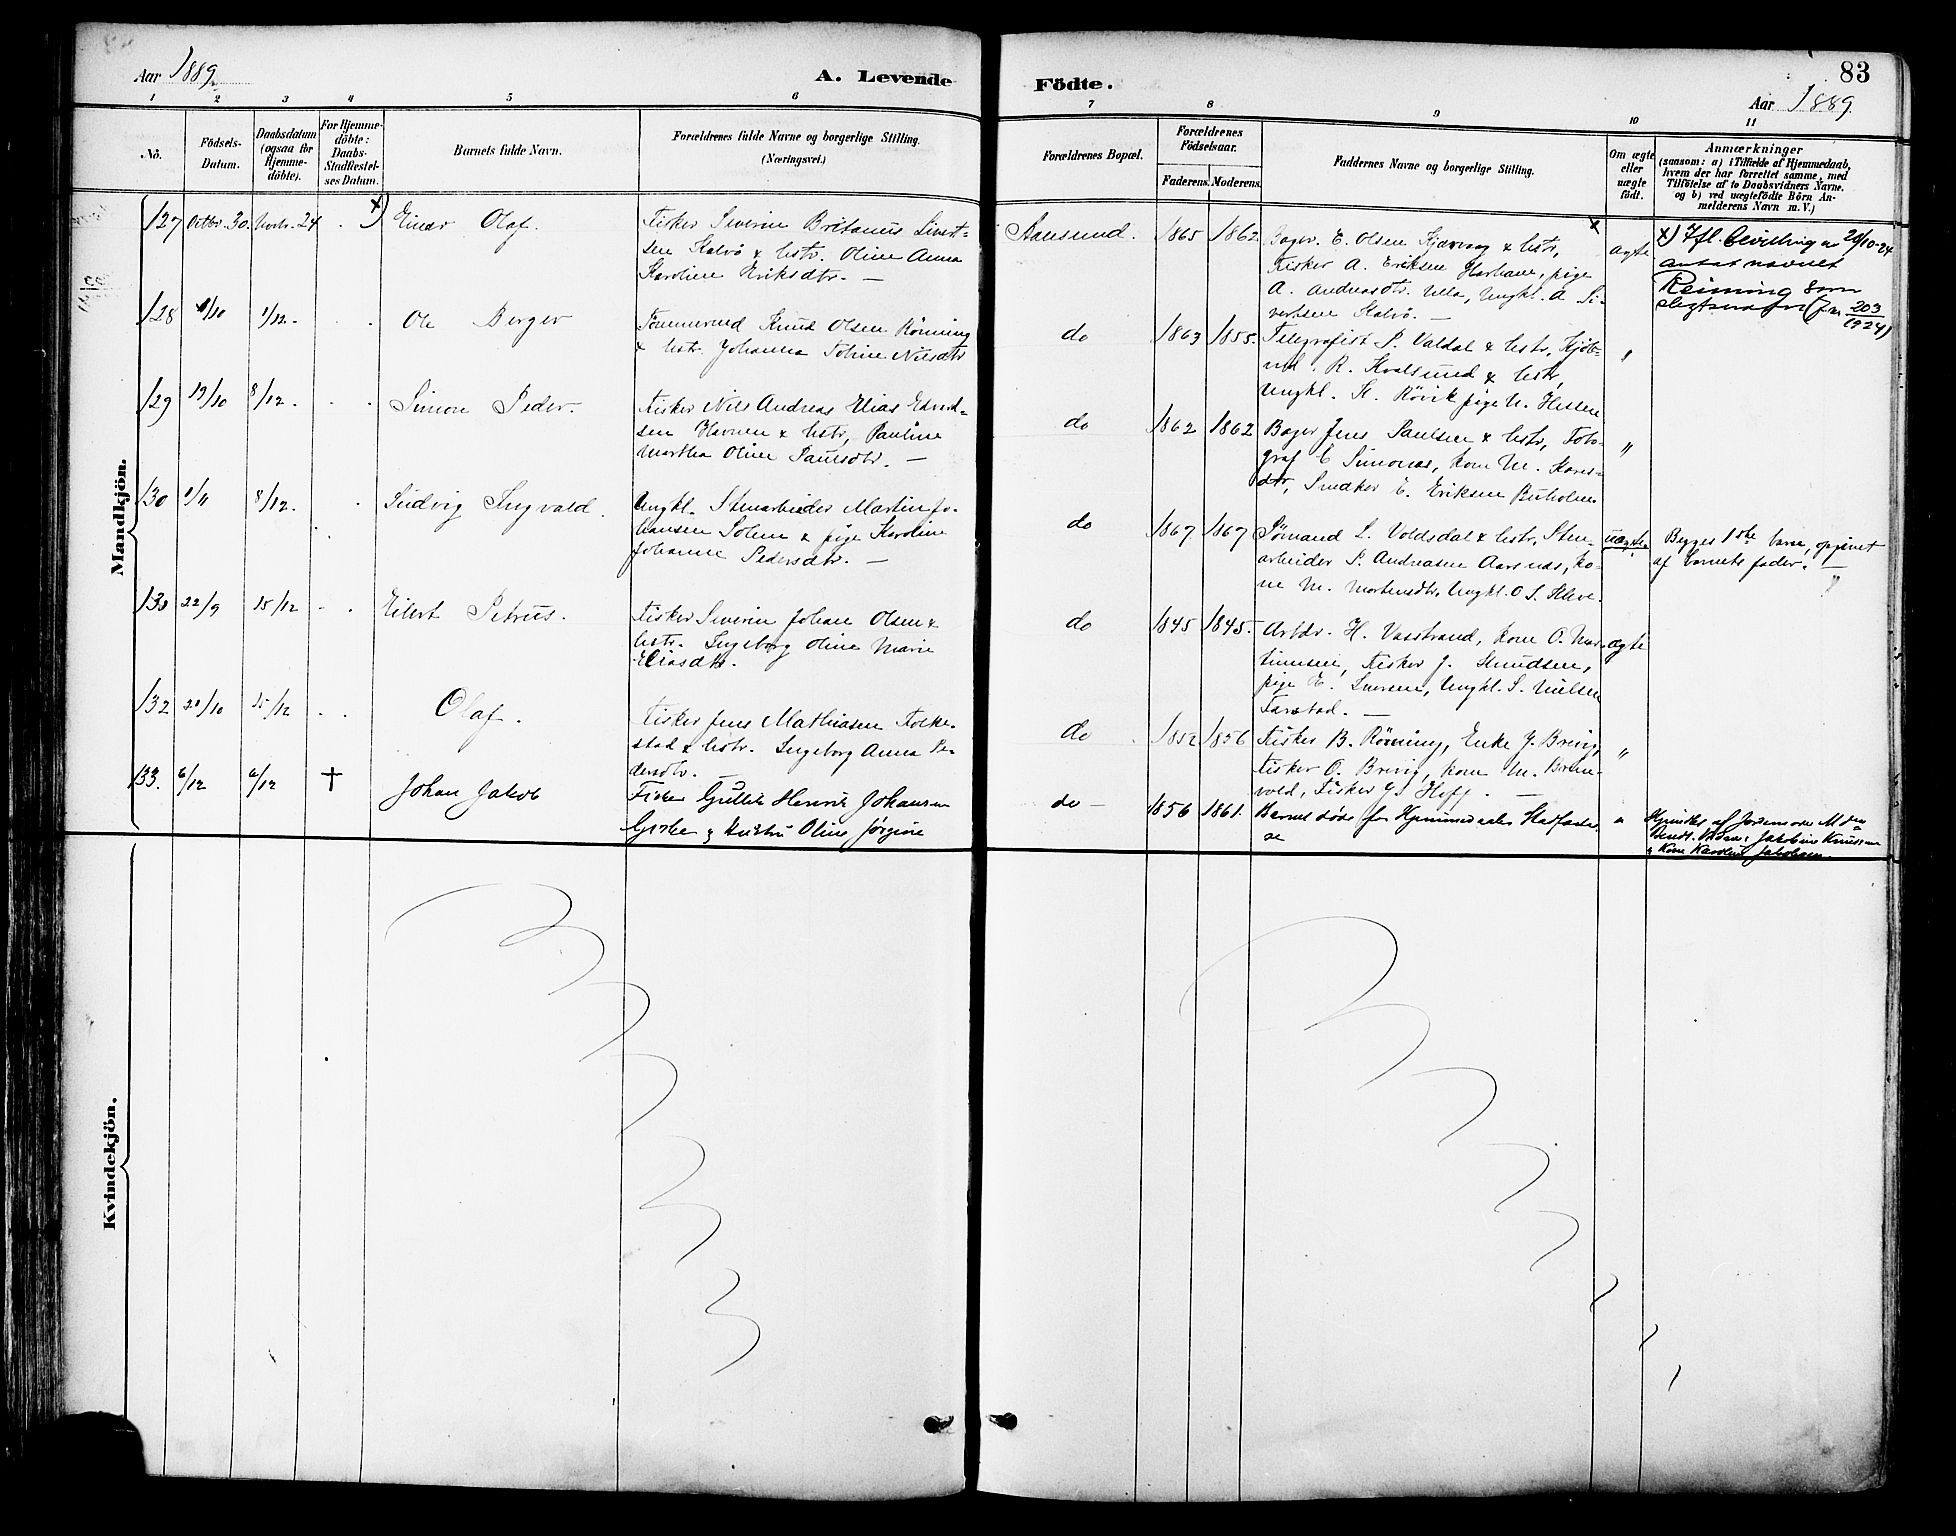 Aar 1889
A. Levende
Födte.
83
Aar 1889.
1 2 3 4 5 6 7 8 9 10 11
No.
Födsels-
Datum.
Daabsdatum
(ogsaa for
Hjemme-
döbte).
For Hjemme-
döbte:
Daabs-
Stadfæstel-
ses Datum.
Barnets fulde Navn.
Forældrenes fulde Navne og borgerlige Stilling.
(Næringsvei.)
Forældrenes Bopæl.
Forældrenes
Födselsaar.
Faderens. Moderens.
Faddernes Navne og borgerlige Stilling.
Om ægte
eller
uægte
födt.
Anmærkninger
(saasom: a) i Tilfælde af Hjemmedaab,
hvem der har forrettet samme, med
Tilföielse af to Daabsvidners Navne.
og b) ved uægtefödte Börn An-
melderens Navn m. V.)
Mandkjön.
127 Octbr. 30. Novbr. 24 x) Einar Olaf.
Fisker Severin Britanus Sivert-
sen Kalvø & hstr. Oline Anna
Karoline Eriksdtr. —
Aalesund. 1865 1862
Bager. E. Olsen & hstr,
Fisker A. Eriksen, pige
A. Andreasdtr. Ulla, Ungkl. A Si-
vertsen Kalvø. —
ægte
x) Ifl. bevilling av 20/10-24
antat navnet
Reinung som
slegtsnavn (J.nr. 203/1924)
128 /10 1/12. Ole Berger
Tømmermd Knud Olsen Rönning
& hstr. Johanna Toline Nilsdtr
do 1863 1855.
Telegrafist P. Valdal & hstr, Kjöb-
md. R. Kvalsund & hstr,
Ungkl. K. Rövik pige N. Hessen
"
129 19/10 8/12. Simon Peder.
Fisker Nils Andreas Elias Edvard-
sen Havnen & hstr, Pauline
Martha Oline Paulsdtr. —
do 1862 1862
Bager Jens Paulsen & hstr, Foto-
graf E Simonas, kone M. Kars-
dtr, Snedker E. Eriksen Buholm
"
130 1/11 8/12. Ludvig Ingvald.
Ungkl. Stenarbeider Martin Jo-
hansen Solem & pige Karoline
Johanne Pedersdtr. —
do 1867 1867
Sømand L. Voldsdal & hstr, Sten-
arbeider P. Andreasen Aarsnes, ko-
ne M. Mortensdtr. Ungkl. O. S.
uægte
Begges 1ste barn, opgivet
af barnets fader. —
131 22/9 15/12 Eilert Petrus.
Fisker Severin Johan Olsen &
hstr. Ingeborg Oline Marie
Eliasdtr.
do 1845 1845.
Arbdr. H. Vasstrand, kone O. Mar-
tinusen, Fisker J. Knudsen,
pige E. Iversen, Ungkl. S. Nielsen
Farstad. —
ægte
132 20/10 15/12 Olaf.
Fisker Jens Mathiasen Folke-
stad & hstr. Ingeborg Anna Pe-
dersdtr. —
do 1852 1856
Fisker B. Rönning, Enke J. Breivig,
Fisker O. Breivig, kone M. Brun-
vold, Fisker J. Hoff. —
"
133. 6/12 6/12 † Johan Jakob
Fisker Gullik Henrik Johansen
& Hustru Oline Jørgine
do — 1856 1861.
Barnet døde før Hjemmedaabs Stadfæstel-
se
"
Hjemdøbt af Jordemoder
Jakobine Knudsen
& Kone Karoline Jakobsen.
Kvindekjön.